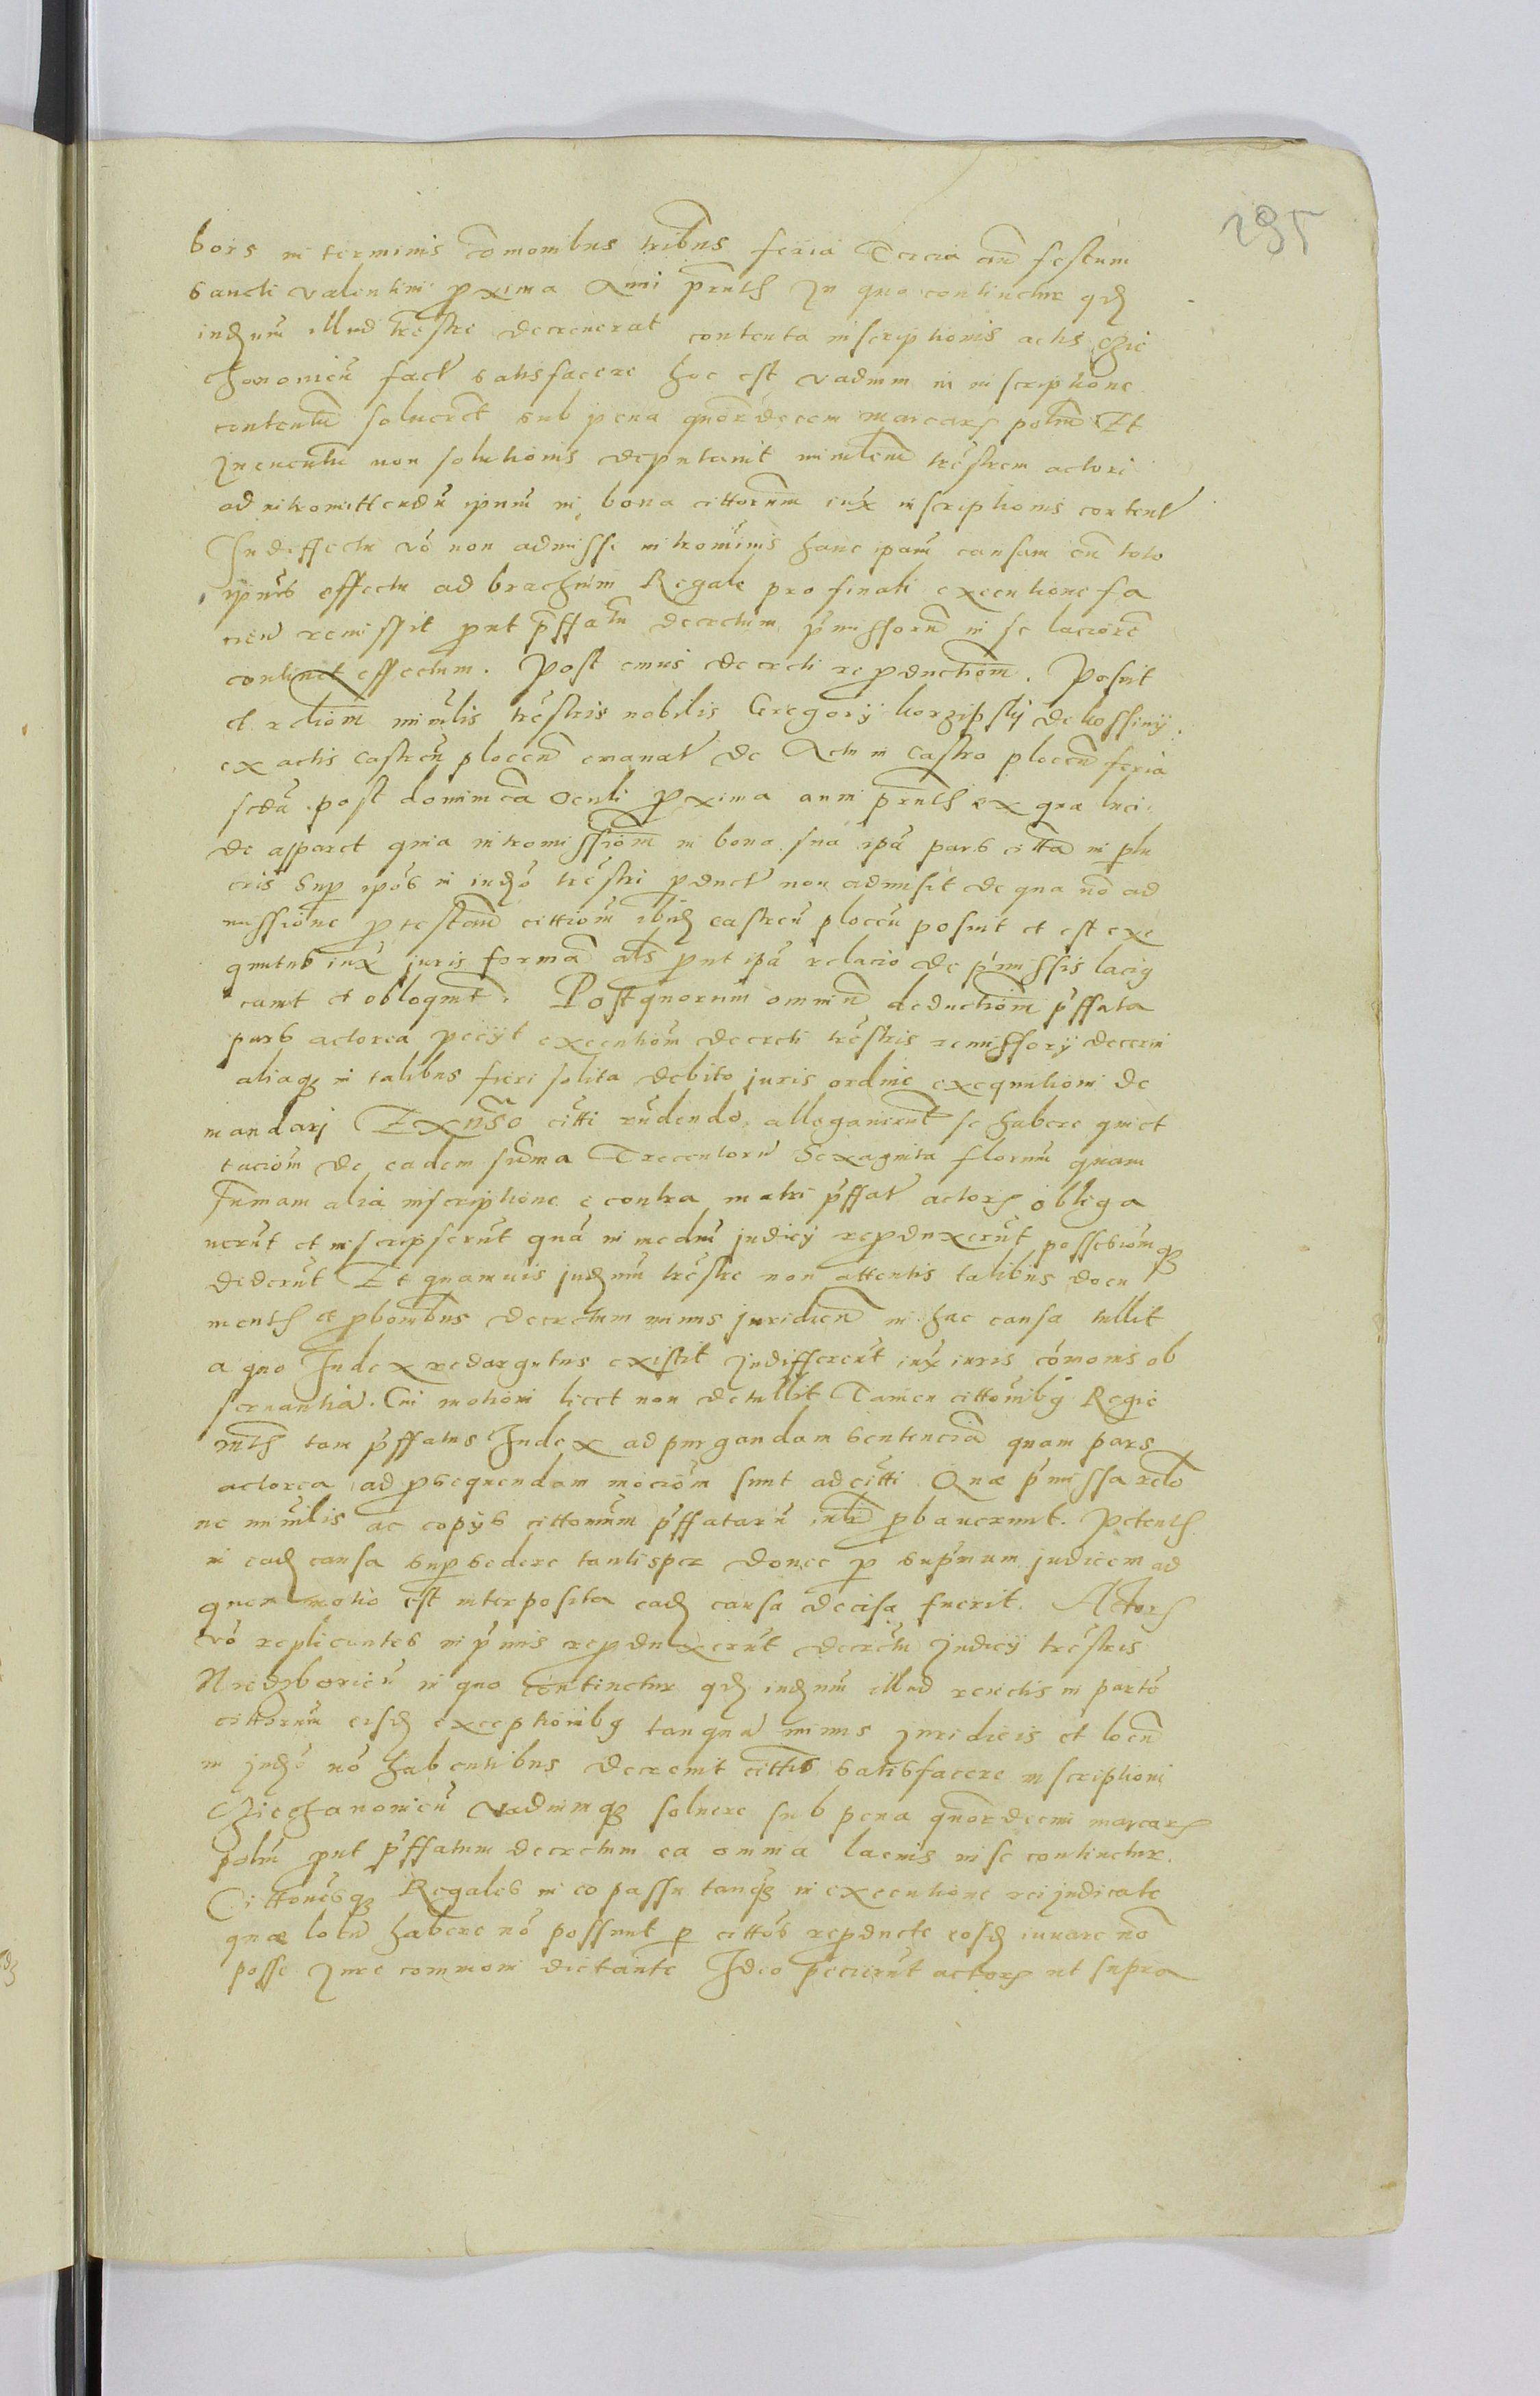 295
bors in terminis comonibus tribus feria Tercia an̄ festum
sancti valentini proxima Anni prntis In quo continetur qd
indnm̄ illud trestre decreuerat contenta inscriptionis actis Czie
chonouien̄ fact satisfacere hoc est vadium in inscriptione
contentū solueret sub pena quordecem marcars polm̄ Et
In euentu non solutionis deputauit minlem̄ trestrem actori
ad intromittendū ipnm̄ in bona cittorum iux inscriptionis content
In deffectu vo non admisse intromīnis hanc ipam̄ causam cū toto
ipius effectu ad brachium Regale pro finali executione fa
cien remissit prut prffatu decretum pmissorū in se laciorē
continet effectum. Post cuius decreti reproductionem. Posuit
et relionem minlis trestris nobilis Gregorij korzipskij de kossinij
ex actis castren̄ plocen̄ emanat de Actu in castro plocen̄ feria
scda post dominica Oculi proxima anni prntis ex qua luci
de apparet quia intromissionem in bona sua ipa pars citta in plu
cris sup ipos in indo trestri product non admisit de qua no ad
missione protestam̄ cittiom̄ ibid castren̄ plocen̄ posuit et est exe
quutus iux juris forma als prut ipa relacio de pmissis lacig
cauit et obloquit. Post quorum omniū deductionem pffata
pars actorea peciit executiom̄ decreti trestris remissorij decerni
aliaq in talibus fieri solita debito juris ordine exequutioni de
mandarj Ex aduerso citti rndendo allegauerunt se habere quiet
taciom̄ de eadem suma Trecentorū Sexaginta florum quam
sumam alia inscriptione e contra matri pffat actors obliga
uerut et inscripserut qua in medin̄ judicij reproduxerut possesiomq
dederut Et quamuis judnm̄ trestre non attentis talibus docu
mentis et probonibus decretum minus juridicū in hac causa tullit
a quo Judex redargutus existit Indifferent iux iuris comonis ob
seruantia. Cui motioni licet non detullit Tamen cittonibq Regie
mtis tam pffatus Judex ad purgandam sentenciā quam pars
actorea ad prosequendam mociom̄ sunt adcitti Quæ pmissa relo
ne minlis ac copijs cittonum pffatarū iudi probauerunt. Petentis
in eadj causa supsedere tantisper donec p supmum judicem ad
quem motio est interposita eadj causa decisa fuerit. Actors
vo replicantes in pmis reproduxerut decretu Judicij trestris
Niedzboricn̄ in quo continetur qd judnm̄ illud reiectis in parte
cittorum eisdj exceptionibq tanquā minus juridicis et locū
in judo no habentibus decreuit cittis satisfacere inscriptioni
Cziechanouien̄ vadiumq soluere sub pena quordecim marcars
polm̄ prut pffatum decretum ea omnia lacius in se continetur.
Cittonesq Regales in eo passu tanq in executione rei judicate
quæ locū habere no possunt p cittos reproducte eosdj iuuare no
posse Jure communi dictante Ideo pecierut actors ut supra